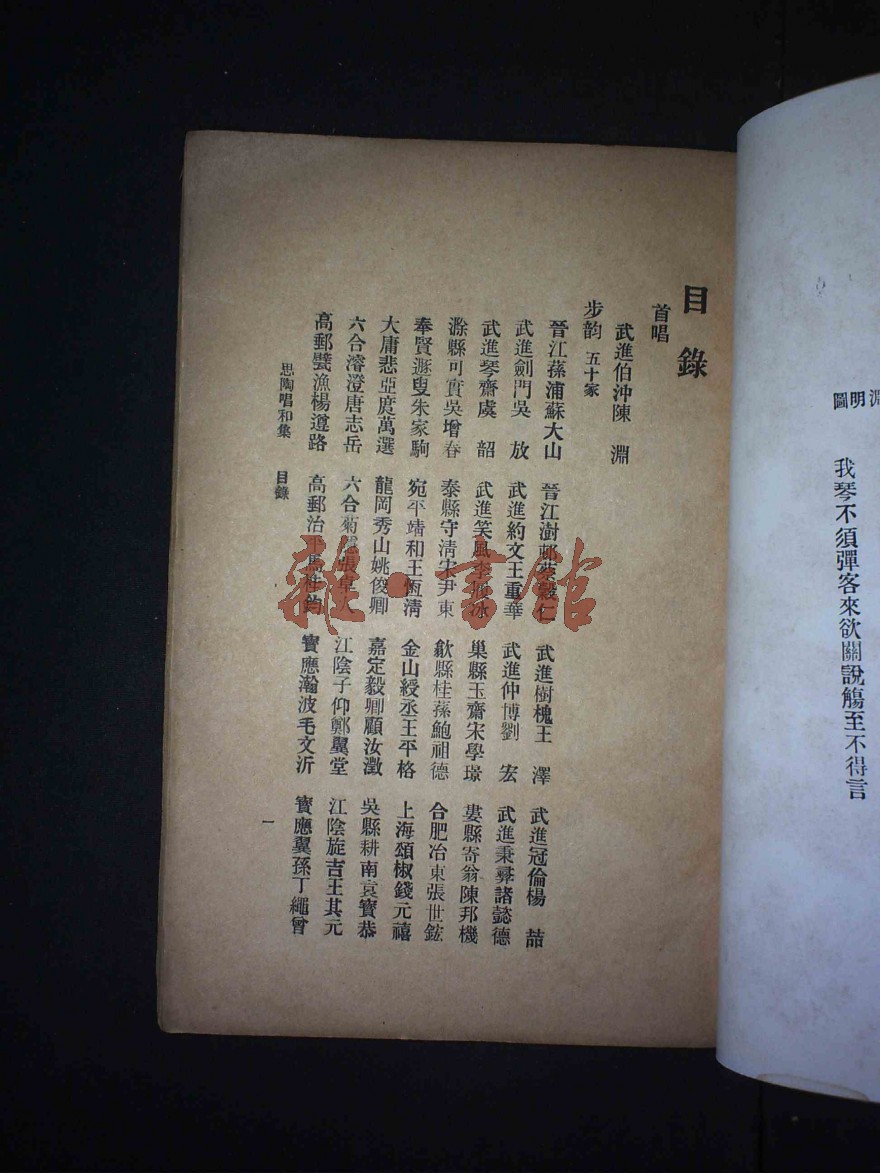 目錄
首唱
武進伯沖陳淵
步韵 五十家
晉江蓀浦蘇大山 晉江澍邨蔡穀仁 武進樹槐王澤 武進冠倫楊喆
武進劍門吳放 武進約文王重華 武進仲博劉宏 武進秉彝諸懿德
武進琴齋虞韶 武進笑風李 冰 巢縣玉齋宋學璟 婁縣寄翁陳邦機
滁縣可實吳增春 泰縣守清宋尹東 歙縣桂蓀鮑祖德 合肥冶東張世鋐
奉賢遯叟朱家駒 宛平靖和王恆清 金山綬丞王平格 上海頌椒錢元禧
大庸悲亞庹萬選 龍岡秀山姚俊卿 嘉定毅卿顧汝澂 吳縣耕南袁寶恭
六合濬澄唐志岳 六合菊 張 江陰子仰鄭翼堂 江陰旋吉王其元
高郵甓漁楊遵路 高郵治平馬 鈞 寶應瀚波毛文沂 寶應翼孫丁繩曾
思陶唱和集 目錄 一
淵明圖
我琴不須彈客來欲關說觴至不得言
雜·書館